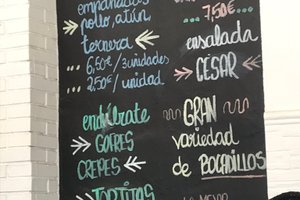 empanadas
pollo, atún
ternera
6,50€/3unidades
2,50€/unidad
endúlzate
GOFRES
CREPES
TORTITAS
7,50€
ensalada
CÉSAR
GRAN
variedad
de BOCADILLOS